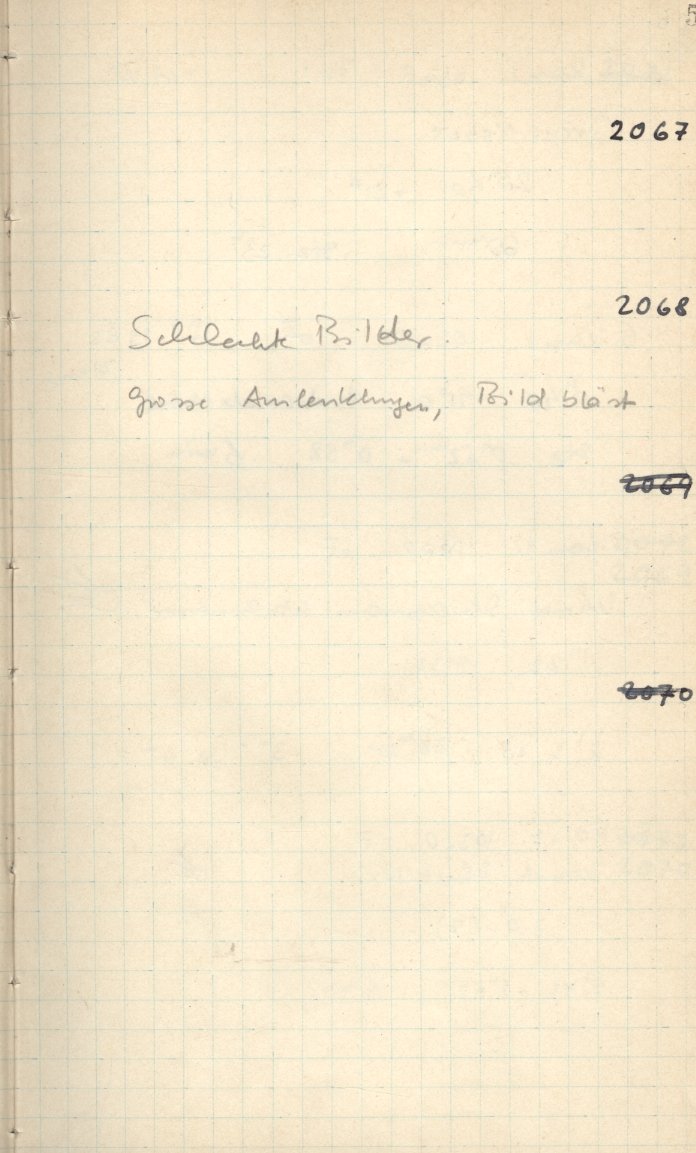 5
2067
2068
Schlechte Bilder.
Grosse Auslenkungen, Bild bläst
2069
2070